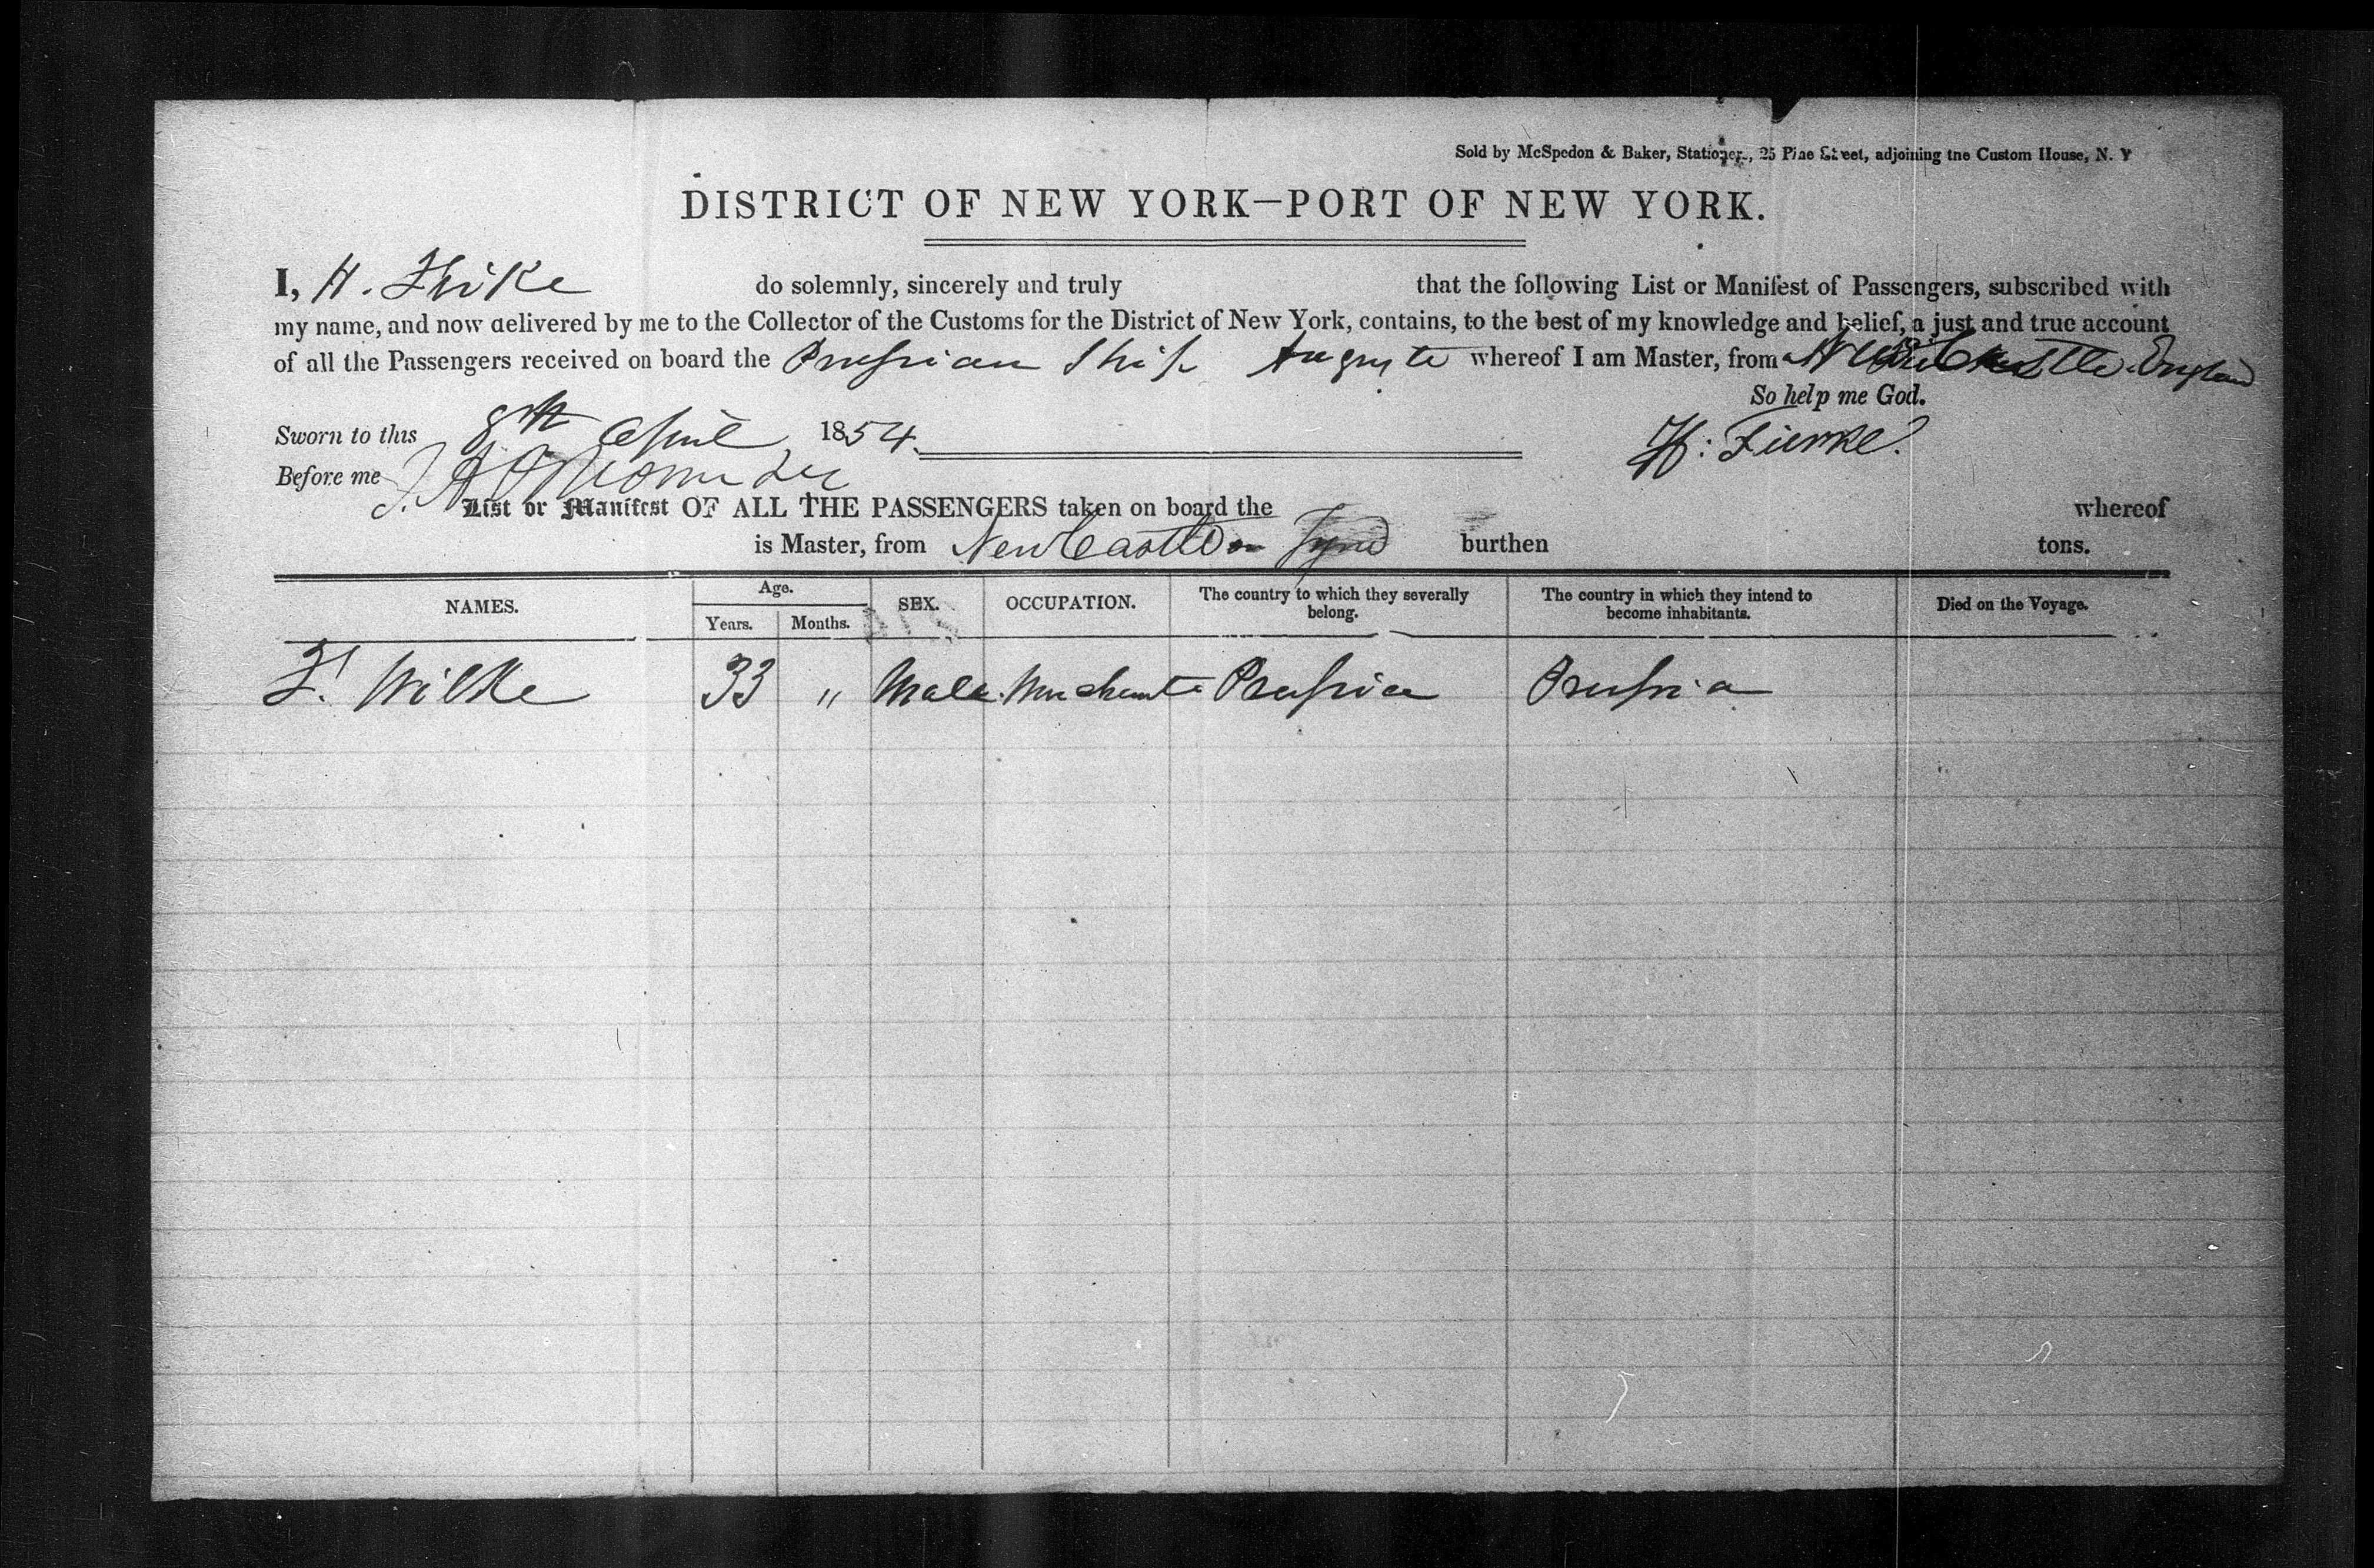 Sold by McSpedon & Baker, Stationers, 25 Pine Street, adjoining the Custom House, N. Y
DISTRICT OF NEW YORK—PORT OF NEW YORK.
I, H. do solemnly, sincerely and truly that the following List or Manifest of Passengers, subscribed with
my name, and now delivered by me to the Collector of the Customs for the District of New York, contains, to the best of my knowledge and belief, a just and true account
of all the Passengers received on board the Prussian Ship Auguste whereof I am Master, from NewCastle England
So help me God.
Sworn to this 8th April 1854.
H:
Before me
List or Manifest OF ALL THE PASSENGERS taken on board the whereof
is Master, from NewCastle on Tyne burthen tons.
NAMES. Age. Years. Months. SEX. OCCUPATION. The country to which they severally belong. The country in which they intend to become inhabitants. Died on the Voyage.
F. Wilke 33 " Male Merchant Prussia Prussia